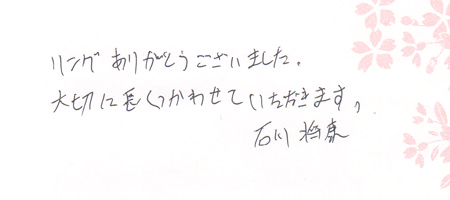 リングありがとうございました。
大切に長くつかわせていただきます。
石川 将康